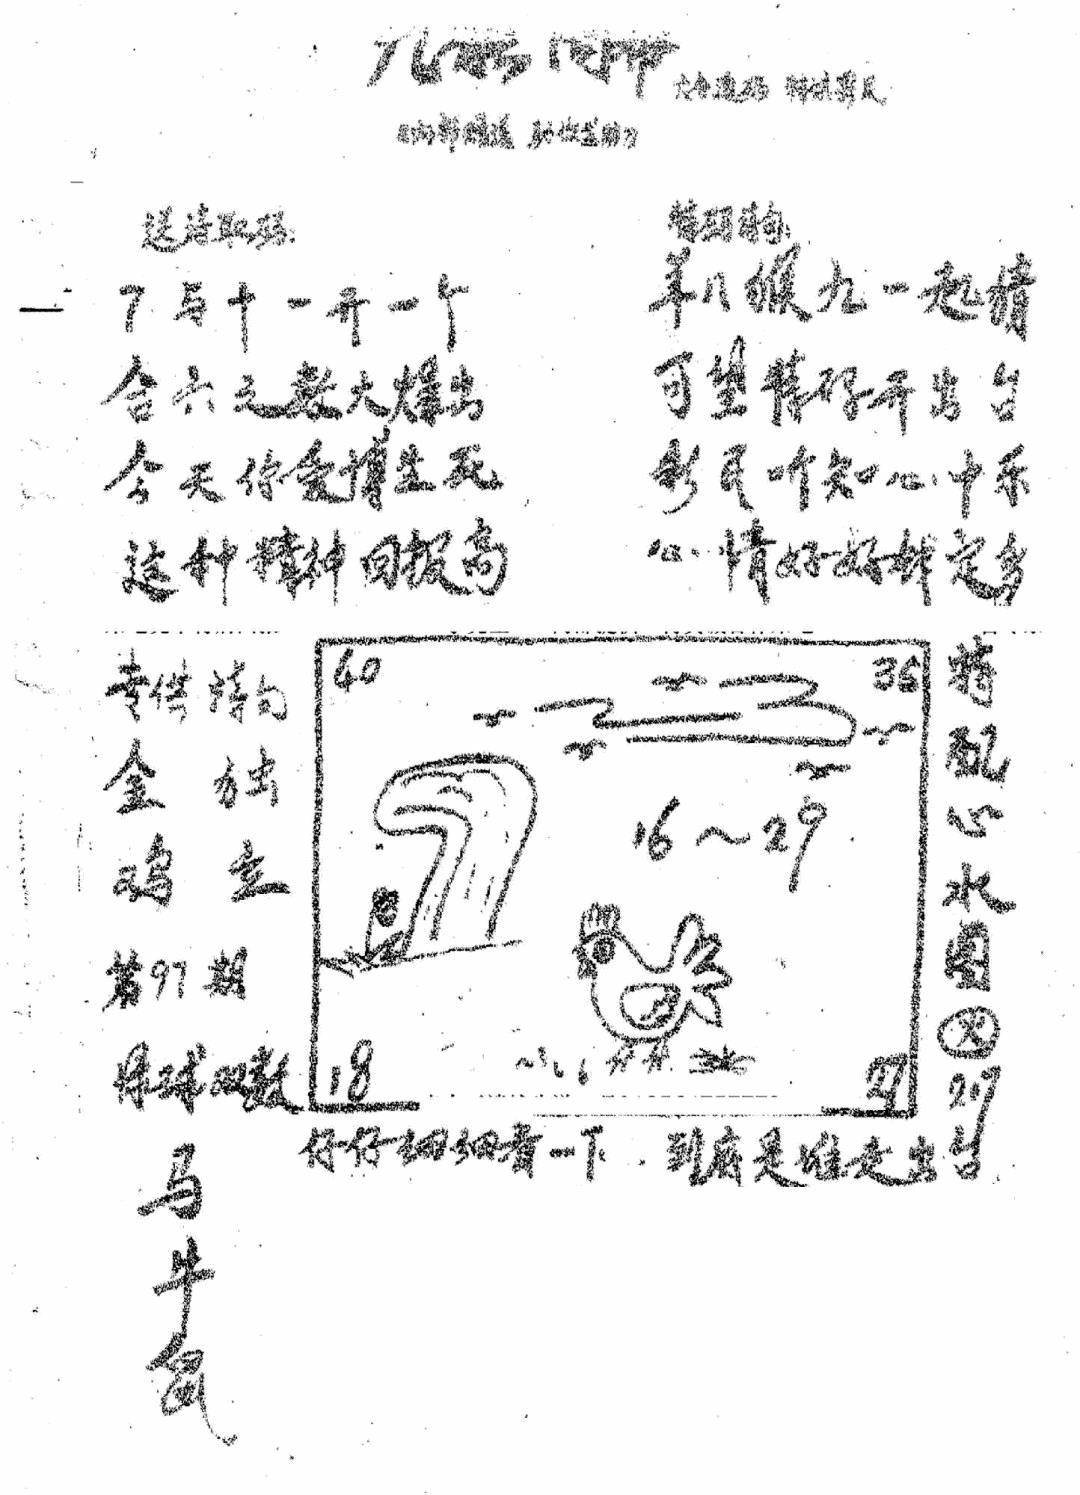 送诗取码:
7与十一开一个
合六之数大爆出
今天你爱博生死
这种精神回报高
特码诗:
羊几猴九一起猜
可望特码开出台
彩民听知心中乐
心情好好钱定多
专供诗句
金鸡独立
第97期
绿球双数
马
牛
鼠
40
36
16~29
18
特配心水图
仔仔细细看一下.到底是谁走出台